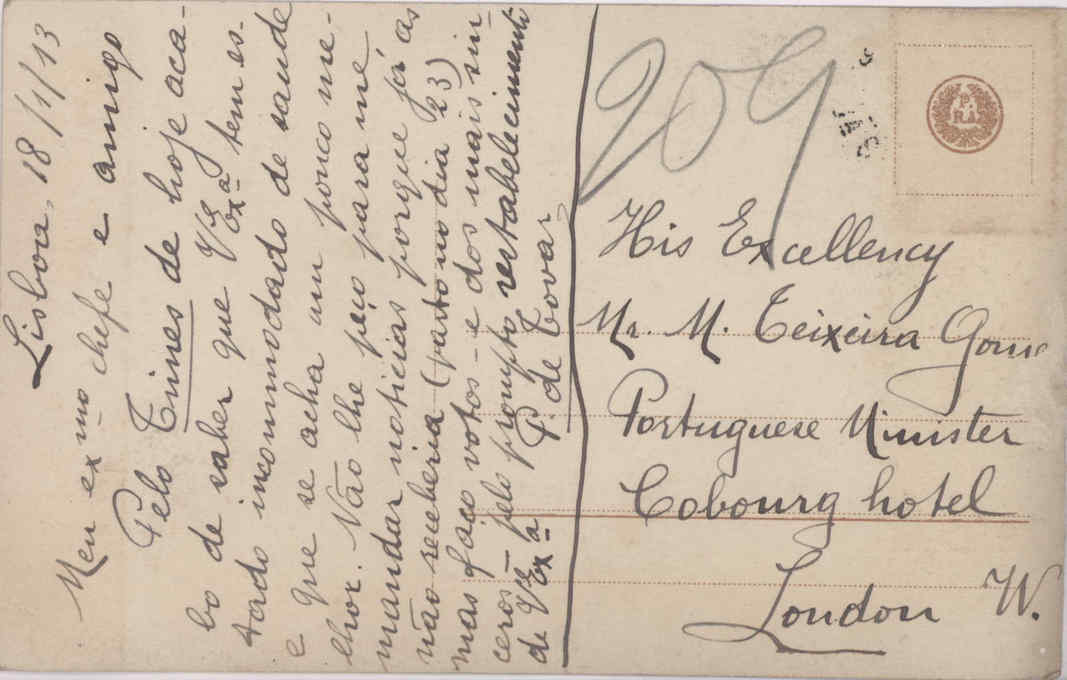 Lisboa, 18/1/13
Meu exmo chefe e amigo
Pelo Times de hoje aca-
bo de saber que Vª Exª tem es-
tado incommodado de saude
e que se acha um pouco me-
lhor. Não lhe peço para me
mandar noticias porque já as
não receberia (parto no dia 23)
mas faço votos - e dos mais sin-
ceros - pelo prompto restabelecimento
de Vª Exª
P. de Tovar
209
His Excellency
Mr. M. Teixeira Gomes
Portuguese Minister
Cobourg hotel
London W.
P.
RA.